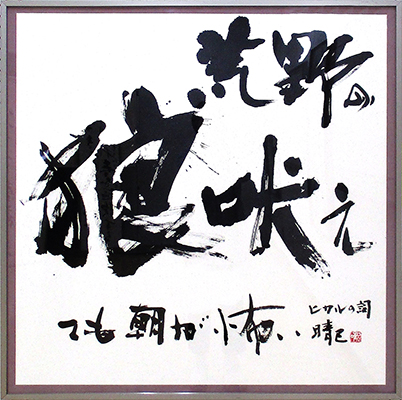 荒野の
狼吠え
ても朝が怖い
ヒカルの詞
晴己